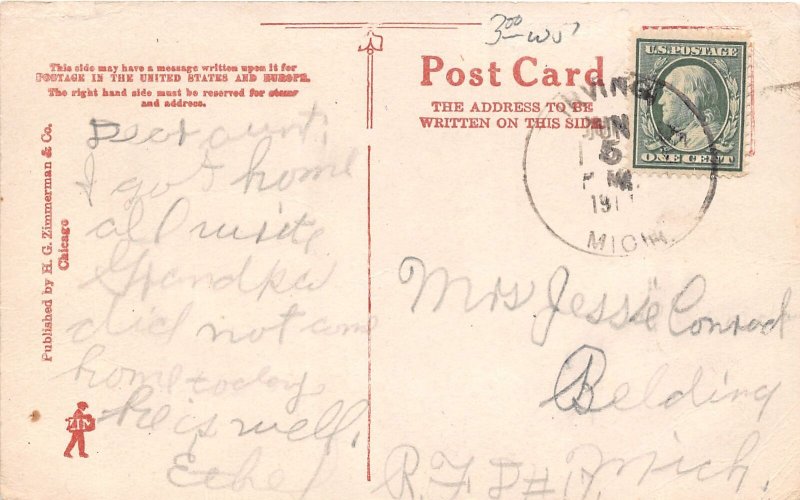 3.00 WS
This side may have a message written upon it for
POSTAGE IN THE UNITED STATES AND EUROPE.
The right hand side must be reserved for stamp
and address.
Post Card
THE ADDRESS TO BE
WRITTEN ON THIS SIDE
U.S. POSTAGE
ONE CENT
IRVING
JUN
5
1911
MICH.
Published by H. G. Zimmerman & Co.
Chicago
ZIM
Dear aunt,
I got home
all write
Grandpa
did not come
home today.
He is well.
Ethel
Mrs Jessie Conrad
Belding
R.F.D. Mich.